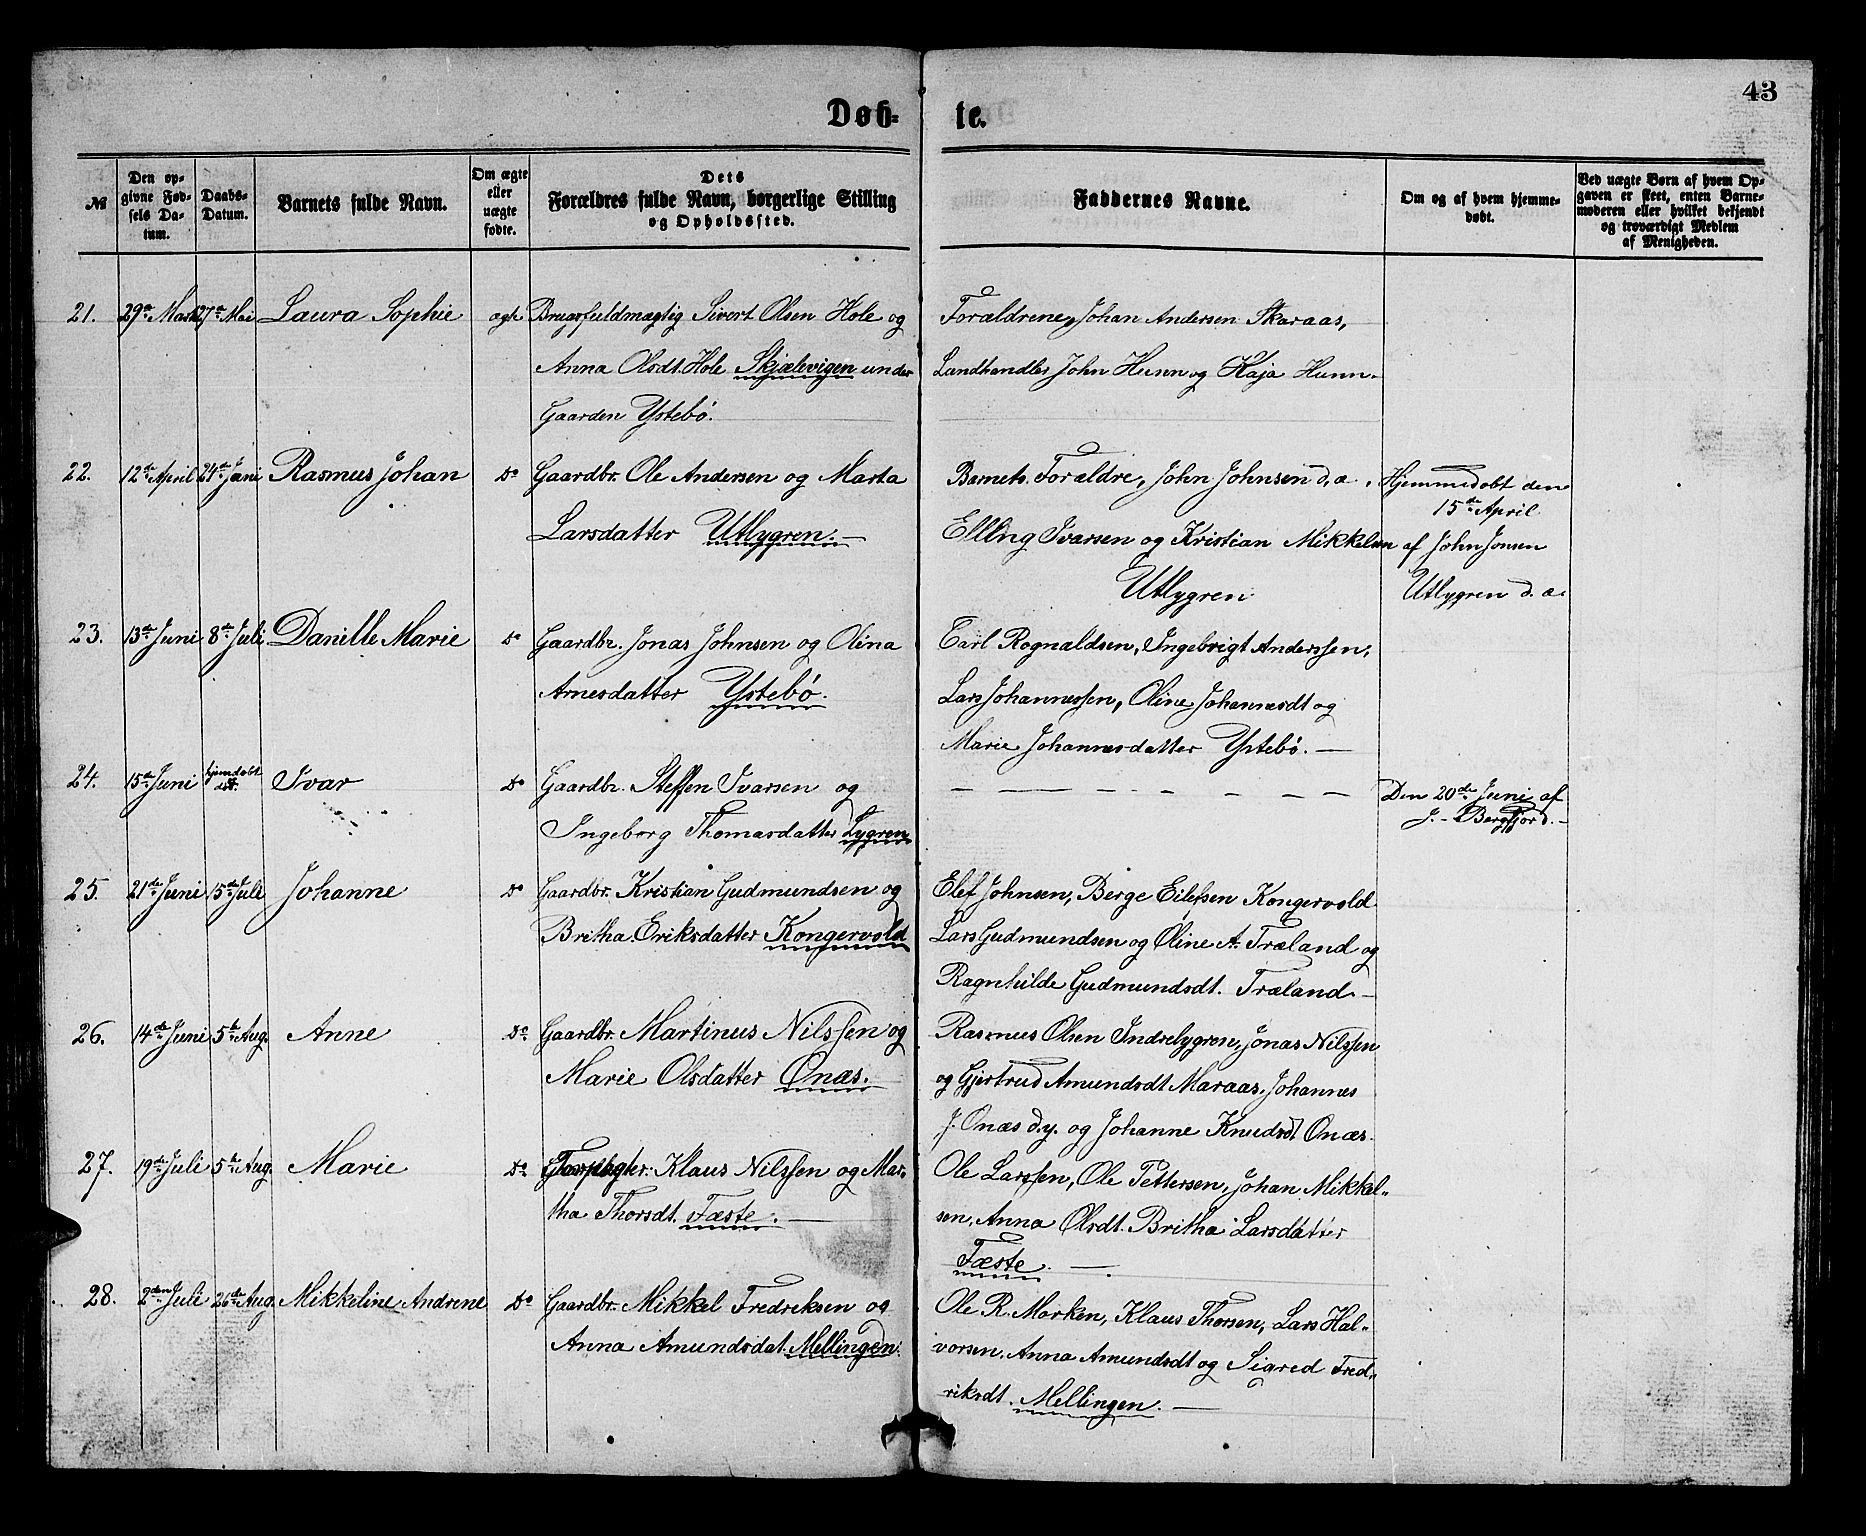 43
Døb- te.
№
Den opgivne Fødsels Datum.
Daabs-Datum.
Barnets fulde Navn.
Om ægte eller uægte fødte.
Dets Forældres fulde Navn, borgerlige Stilling og Opholdssted.
Faddernes Navne.
Om og af hvem hjemmedøbt.
Ved uægte Børn af hvem Opgaven er skeet, enten Barnemoderen eller hvilket bekjendt og troværdigt Medlem af Menigheden.
21. 29de Marts 27de Mai Laura Sophie ægte Brugsfuldmægtig Sivert Olsen Hole og
Anna Olsdt. Hole Skjælevigen under
Gaarden Ystebø.
Forældrene, Johan Andersen Skaraas,
Landhandler John Hunn og Kaja Hunn.
22. 12te April 24de Juni Rasmus Johan Do Gaardbr. Ole Andersen og Marta
Larsdatter Utlygren.
Barnets Forældre, John Johnsen d. æ.
Elling Ivarsen og Kristian Mikkelsen
Utlygren
Hjemmedøbt den
15de April
af John Jonsen
Utlygren d. æ.
23. 13de Juni 8de Juli Danille Marie Do Gaardbr. Jonas Johnsen og Olina
Arnesdatter Ystebø.
Carl Rognaldsen, Ingebrigt Anderssen,
Lars Johannessen, Oline Johannesdt og
Marie Johannesdatter Ystebø.
24. 15de Juni hjemdøbt død. Ivar Do Gaardbr. Steffen Ivarsen og
Ingeborg Thomasdatter Lygren
Den 20de Juni af
J. Bergfjord.
25. 21de Juni 15de Juli Johanne Do Gaardbr. Kristian Gudmundsen og
Britha Eriksdatter Kongervold
Elef Johnsen, Berge Eilefsen Kongervold
Lars Gudmundsen og Oline A. Træland og
Ragnhilde Gudmundsdt. Træland.
26. 14de Juni 5te Aug. Anne Do Gaardbr. Martinus Nilssen og
Marie Olsdatter Onæs.
Rasmus Olsen Indrelygren, Jonas Nilssen
og Gjertrud Amundsdt Maraas. Johannes
J. Onæs d.y. og Johanne Knudsdt Onæs.
27. 19de Juli 5te Aug. Marie Do Klaus Nilssen og Mar-
tha Thorsdt. Fæste.
Ole Larssen, Ole Pettersen, Johan Mikkel-
sen, Anna Olsdt. Britha Larsdatter
Fæste.
28. 2den Juli 26de Aug. Mikkeline Andrene Do Gaardbr. Mikkel Fredriksen og
Anna Amundsdat. Mellingen.
Ole R. Marken, Klaus Thorsen, Lars Hal-
vorsen. Anna Amundsdt og Sigred Fred-
riksdt. Mellingen.